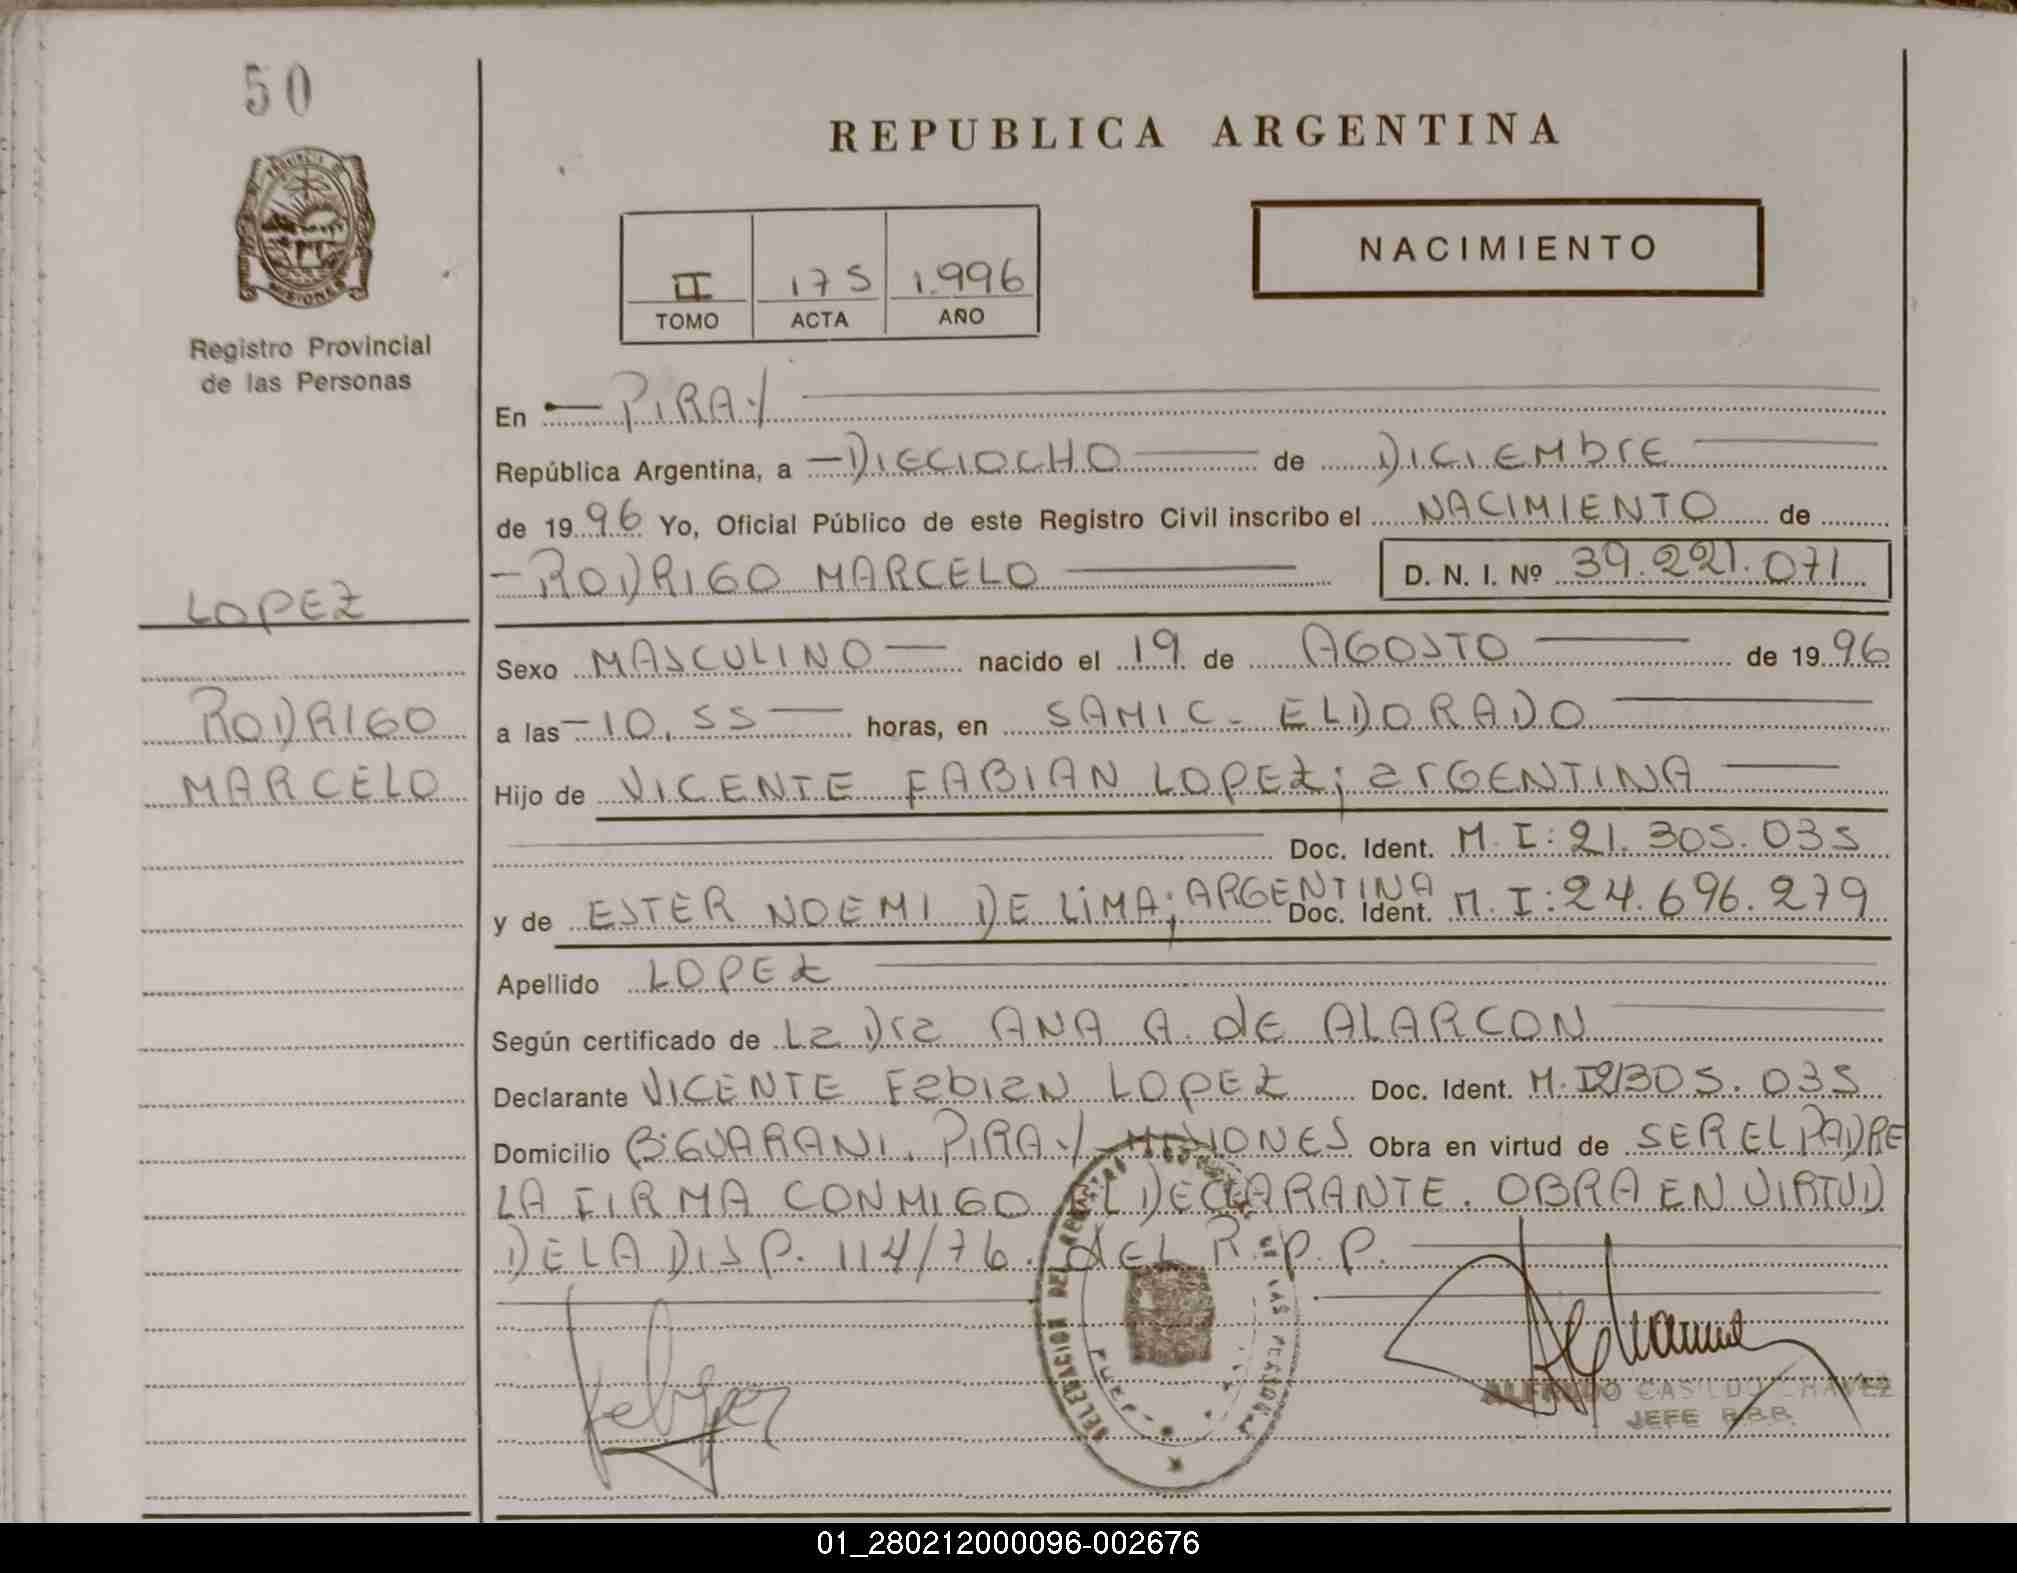 50
REPUBLICA ARGENTINA
NACIMIENTO
II 175 1.996
TOMO ACTA AÑO
MISIONES
Registro Provincial
de las Personas
En PIRAY
República Argentina, a DIECIOCHO de DICIEMBrE
de 1996 Yo, Oficial Público de este Registro Civil inscribo el NACIMIENTO de
RODRIGO MARCELO D. N. I. Nº 39.221.071
LOPEZ
RODRIGO
MARCELO
Sexo MASCULINO nacido el 19 de AGOSTO de 1996
a las 10,55 horas, en SAMIC - ELDORADO
Hijo de VICENTE FABIAN LOPEZ; arGENTINA
Doc. Ident. M.I: 21.305.035
y de ESTER NOEMI DE LiMA; ARGENTINA Doc. Ident. M.I: 24.696.279
Apellido LOPEZ
Según certificado de La Dra ANA A. dE ALARCON
Declarante VICENTE FabiaN LOPEZ Doc. Ident. M.I21305.035
Domicilio Bº GUARANI. PIRAY - MISIONES Obra en virtud de SER EL PADRE
LA FIRMA CONMIGO EL DECLARANTE. OBRA EN VIRTUD
DE LA DISP. 114/76. dEL R.P.P.
DELEGACION DEL REGISTRO LAS PERSONAS
ALFREDO CASILDO CHAVEZ
JEFE
01_280212000096-002676